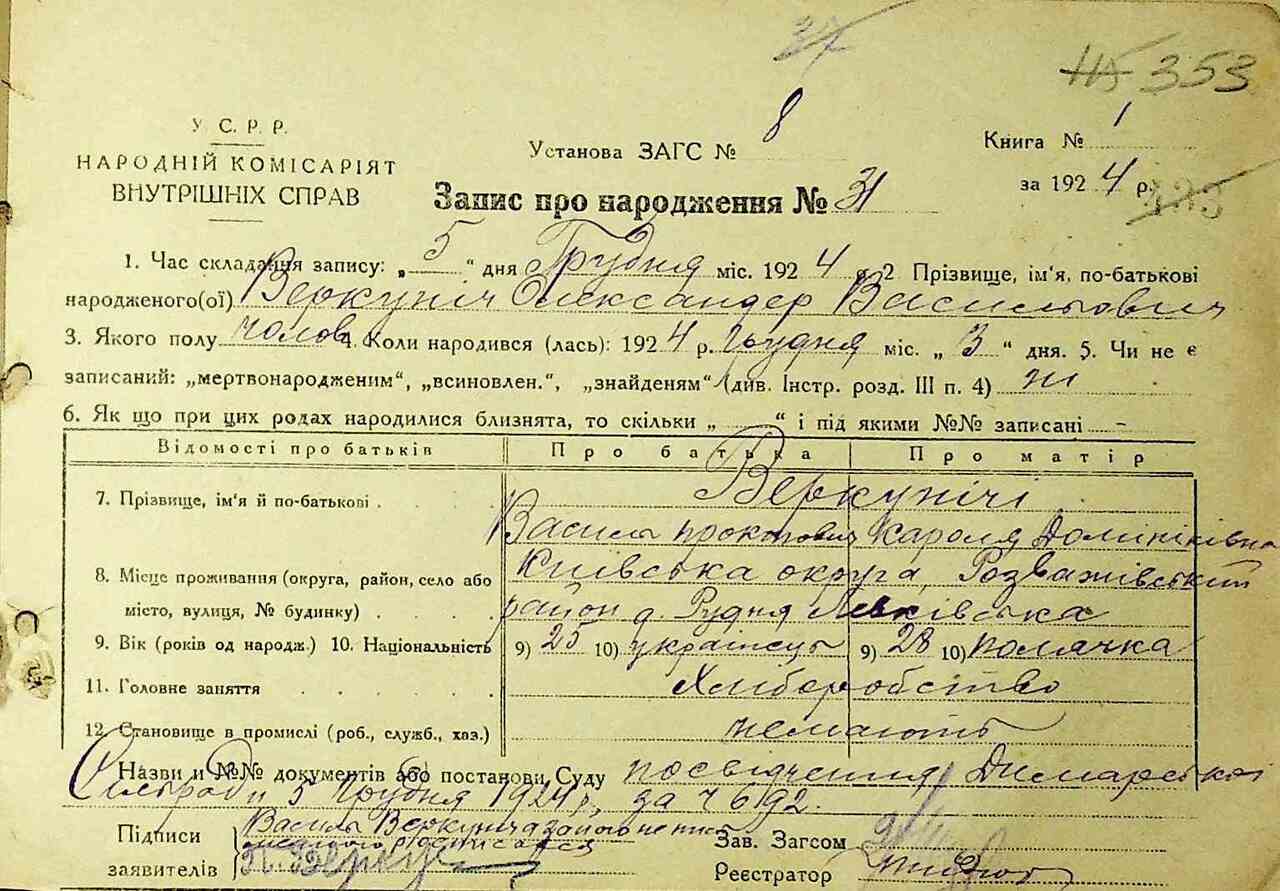 37
115 353
У. С. Р. Р.
НАРОДНІЙ КОМІСАРІЯТ
ВНУТРІШНІХ СПРАВ
Установа ЗАГС № 8
Книга № 1
за 1924 р.
Запис про народження № 31
1. Час складання запису: „5“ дня Грудня міс. 1924 р. 2 Прізвище, ім'я, по-батькові
народженого(ої) Веркуніч Олександер Васильович
3. Якого полу чолов. 4. Коли народився (лась): 1924 р. грудня міс. „3“ дня. 5. Чи не є
записаний: „мертвонародженим“, „всиновлен.“, „знайденям“ (див. Інстр. розд. III п. 4) ні
6. Як що при цих родах народилися близнята, то скільки „ “ і під якими №№ записані -
Відомості про батьків Про батька Про матір
7. Прізвище, ім'я й по-батькові Веркунічі
Василь Прокопович Кароля Домініківна
8. Місце проживання (округа, район, село або Київська округа, Розважівський
місто, вулиця, № будинку) район д. Рудня Левківська
9. Вік (років од народж.) 10. Національність 9) 25 10) українець 9) 28 10) полячка
11. Головне заняття Хліборобство
12. Становище в промислі (роб., служб., хаз.) немають
Назви и №№ документів або постанови Суду посвідчення Димарської
Сільради 5 грудня 1924 р. за №
Підписи Василь Веркуніч
заявителів
Зав. Загсом
Реєстратор